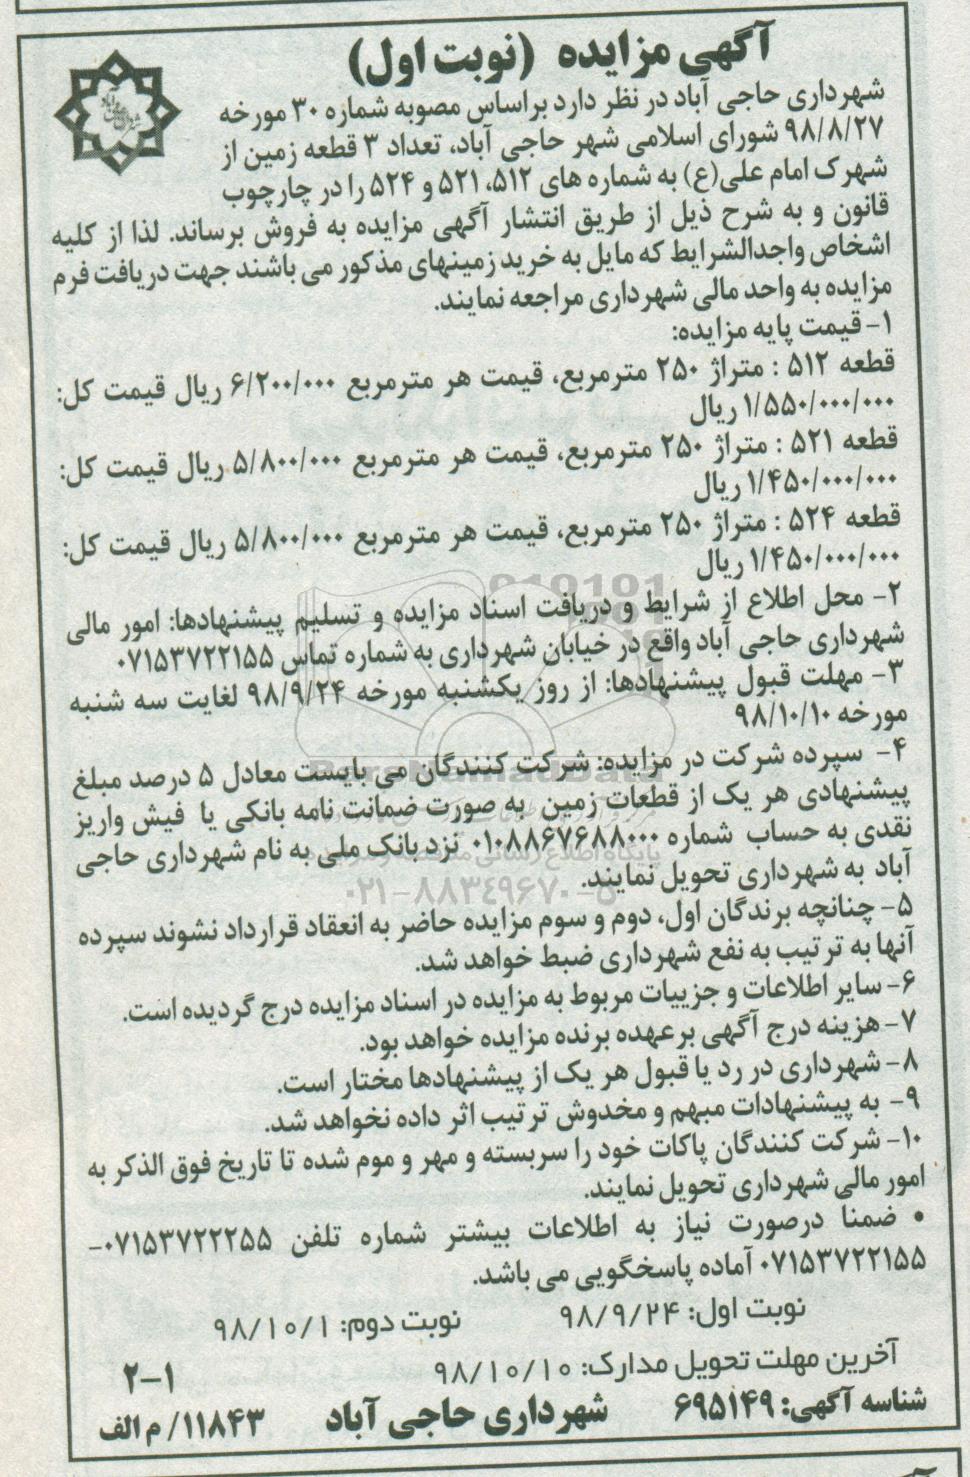 آگهی مزایده (نوبت اول)
شهرداری حاجی آباد در نظر دارد براساس مصوبه شماره ۳۰ مورخه
۹۸/۸/۲۷ شورای اسلامی شهر حاجی آباد، تعداد ۳ قطعه زمین از
شهرک امام علی(ع) به شماره های ۵۱۲، ۵۲۱ و ۵۲۴ را در چارچوب
قانون و به شرح ذیل از طریق انتشار آگهی مزایده به فروش برساند. لذا از کلیه
اشخاص واجدالشرایط که مایل به خرید زمینهای مذکور می باشند جهت دریافت فرم
مزایده به واحد مالی شهرداری مراجعه نمایند.
۱- قیمت پایه مزایده:
قطعه ۵۱۲ : متراژ ۲۵۰ مترمربع، قیمت هر مترمربع ۶/۲۰۰/۰۰۰ ریال قیمت کل:
۱/۵۵۰/۰۰۰/۰۰۰ ریال
قطعه ۵۲۱ : متراژ ۲۵۰ مترمربع، قیمت هر مترمربع ۵/۸۰۰/۰۰۰ ریال قیمت کل:
۱/۴۵۰/۰۰۰/۰۰۰ ریال
قطعه ۵۲۴ : متراژ ۲۵۰ مترمربع، قیمت هر مترمربع ۵/۸۰۰/۰۰۰ ریال قیمت کل:
۱/۴۵۰/۰۰۰/۰۰۰ ریال
۲- محل اطلاع از شرایط و دریافت اسناد مزایده و تسلیم پیشنهادها: امور مالی
شهرداری حاجی آباد واقع در خیابان شهرداری به شماره تماس ۰۷۱۵۳۷۲۲۱۵۵
۳- مهلت قبول پیشنهادها: از روز یکشنبه مورخه ۹۸/۹/۲۴ لغایت سه شنبه
مورخه ۹۸/۱۰/۱۰
۴- سپرده شرکت در مزایده: شرکت کنندگان می بایست معادل ۵ درصد مبلغ
پیشنهادی هر یک از قطعات زمین به صورت ضمانت نامه بانکی یا فیش واریز
نقدی به حساب شماره ۰۱۰۸۸۶۷۶۸۸۰۰۰ نزد بانک ملی به نام شهرداری حاجی
آباد به شهرداری تحویل نمایند.
۰۲۱-۸۸۳۴۹۶۷۰-۵
۵- چنانچه برندگان اول، دوم و سوم مزایده حاضر به انعقاد قرارداد نشوند سپرده
آنها به ترتیب به نفع شهرداری ضبط خواهد شد.
۶- سایر اطلاعات و جزییات مربوط به مزایده در اسناد مزایده درج گردیده است.
۷- هزینه درج آگهی برعهده برنده مزایده خواهد بود.
۸- شهرداری در رد یا قبول هر یک از پیشنهادها مختار است.
۹- به پیشنهادات مبهم و مخدوش ترتیب اثر داده نخواهد شد.
۱۰- شرکت کنندگان پاکات خود را سربسته و مهر و موم شده تا تاریخ فوق الذکر به
امور مالی شهرداری تحویل نمایند.
• ضمنا درصورت نیاز به اطلاعات بیشتر شماره تلفن ۰۷۱۵۳۷۲۲۲۵۵-
۰۷۱۵۳۷۲۲۱۵۵ آماده پاسخگویی می باشد.
نوبت اول: ۹۸/۹/۲۴ نوبت دوم: ۹۸/۱۰/۱
آخرین مهلت تحویل مدارک: ۹۸/۱۰/۱۰
۲-۱
شناسه آگهی: ۶۹۵۱۴۹ شهرداری حاجی آباد ۱۱۸۴۳/ م الف